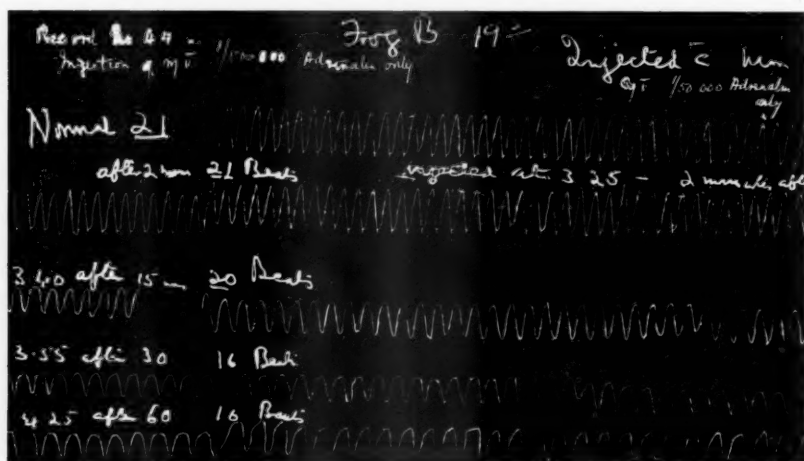 Record No 47 – Frog B 19
Injection of 1/150 000 Adrenalin only
Injected c̄
1/50 000 Adrenalin only
Normal 21
after 2 mm 21 Beats injected at 3 25 – 2 minutes aft
3 40 after 15 m 20 Beats
3.55 after 30 16 Beats
4 25 after 60 16 Beats